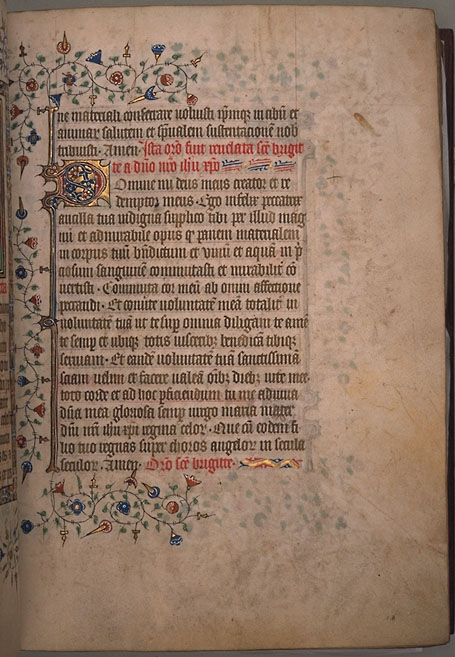 ne materiali consecrare voluisti ipsumque in cibum et
animarum salutem et spiritualem sustentacionem nobis
tribuisti. Amen. Ista oro fuit revelata sce brigit
te a dno nro ihu xpo
Domine mi deus meus creator et re
demptor meus. Ego infelix peccatrix
ancilla tua indigna supplico tibi per illud mag
nu et admirabile opus q panem materialem
in corpus tuu bndictum et vinu et aquam in p
ciosum sanguinem commutasti et mirabilit co
vertisti. Commuta cor meu ab omni affectione
peccandi. Et comute voluntate mea totalit in
voluntate tua ut te sup omnia diligam te ame
te semp et ubiq totis visceribz benedicam tibiq
serviam. Et eande voluntate tua sanctissima
sciam velim et facere valea oibz diebz vite mee
toto corde et ad hoc pficiendum tu me adiuva
dna mea gloriosa semp virgo maria mater
dni nri ihu xpi regina celor. Que cu eodem fi
lio tuo regnas super choros angelor in secula
seculor. Amen. Oro sce brigitte.